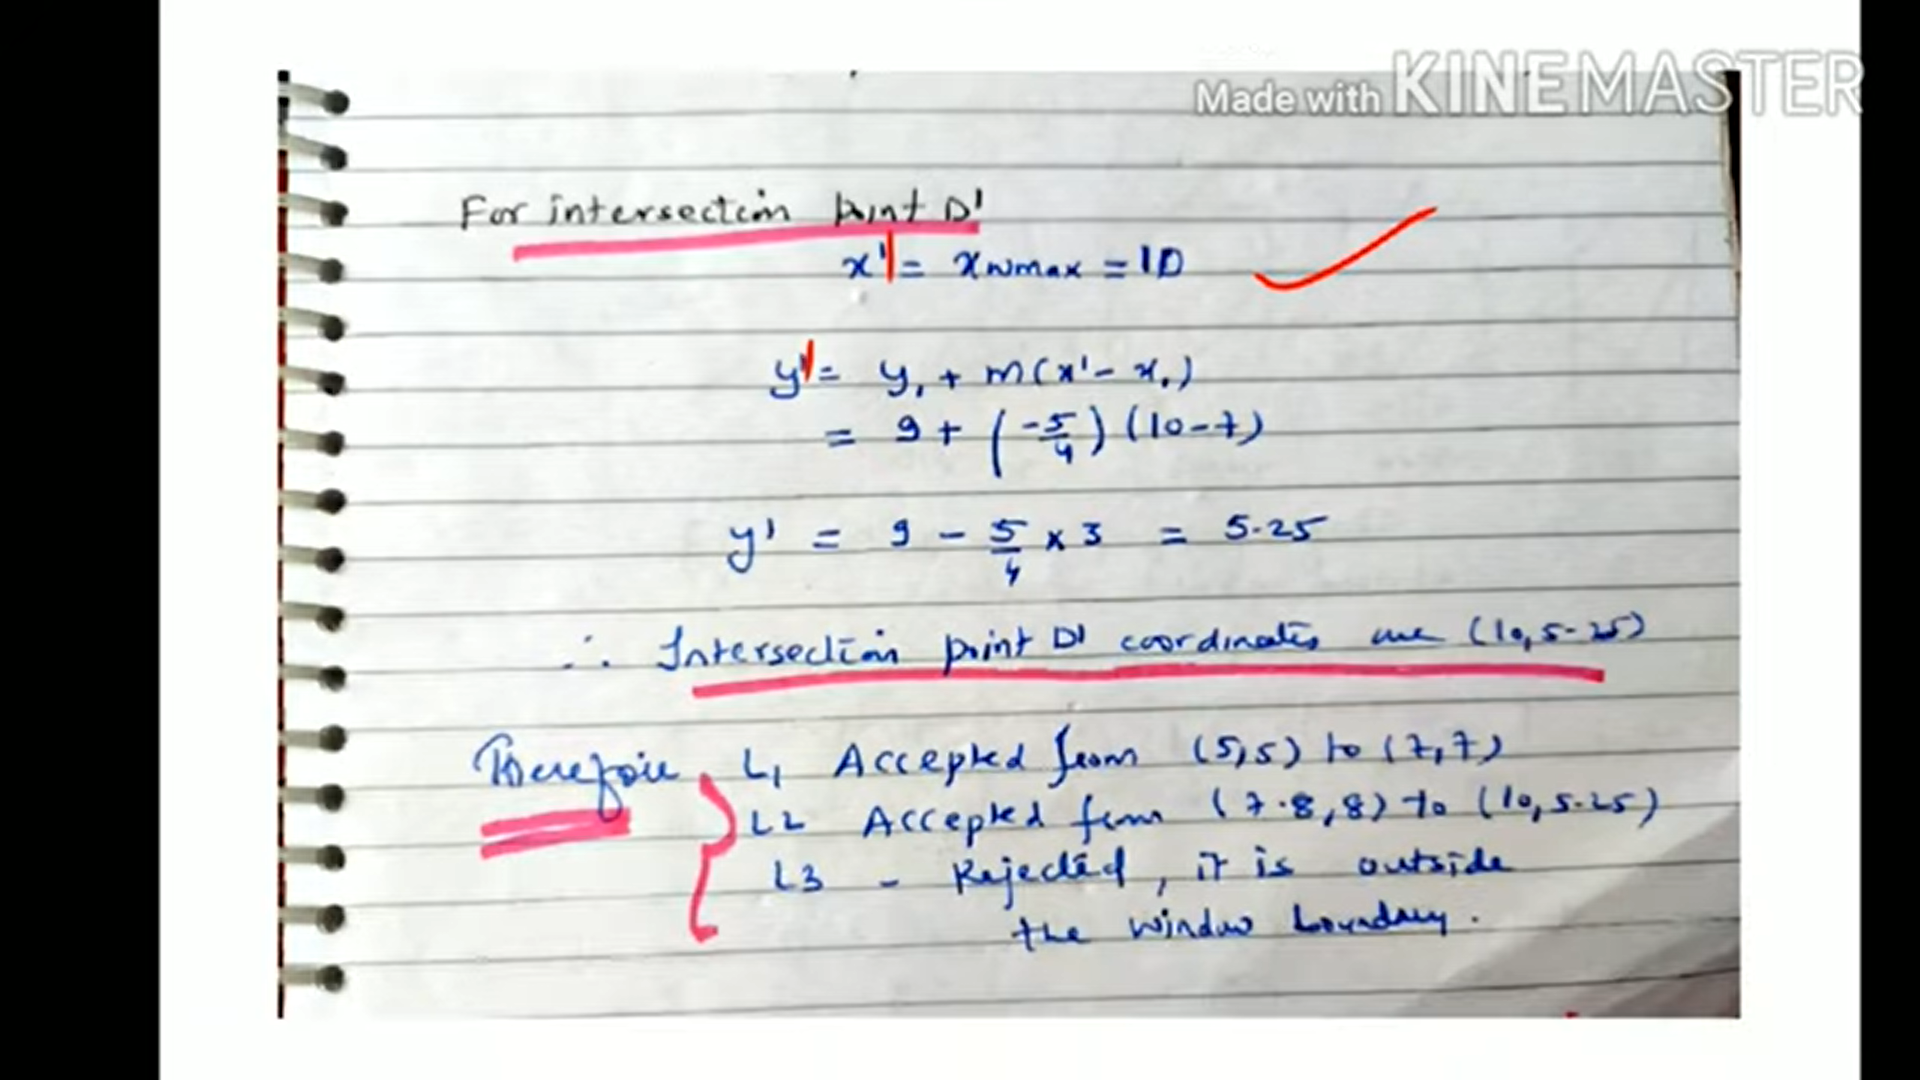 Made with KINEMASTER
For intersection point D'
x' = xwmax = 10
y' = y1 + m(x' - x1)
= 9 + (-5/4) (10-7)
y' = 9 - 5/4 x 3 = 5.25
∴ Intersection point D' coordinates are (10, 5.25)
Therefore L1 Accepted from (5,5) to (7,7)
L2 Accepted from (7.8,8) to (10, 5.25)
L3 - Rejected, it is outside
the window boundary.